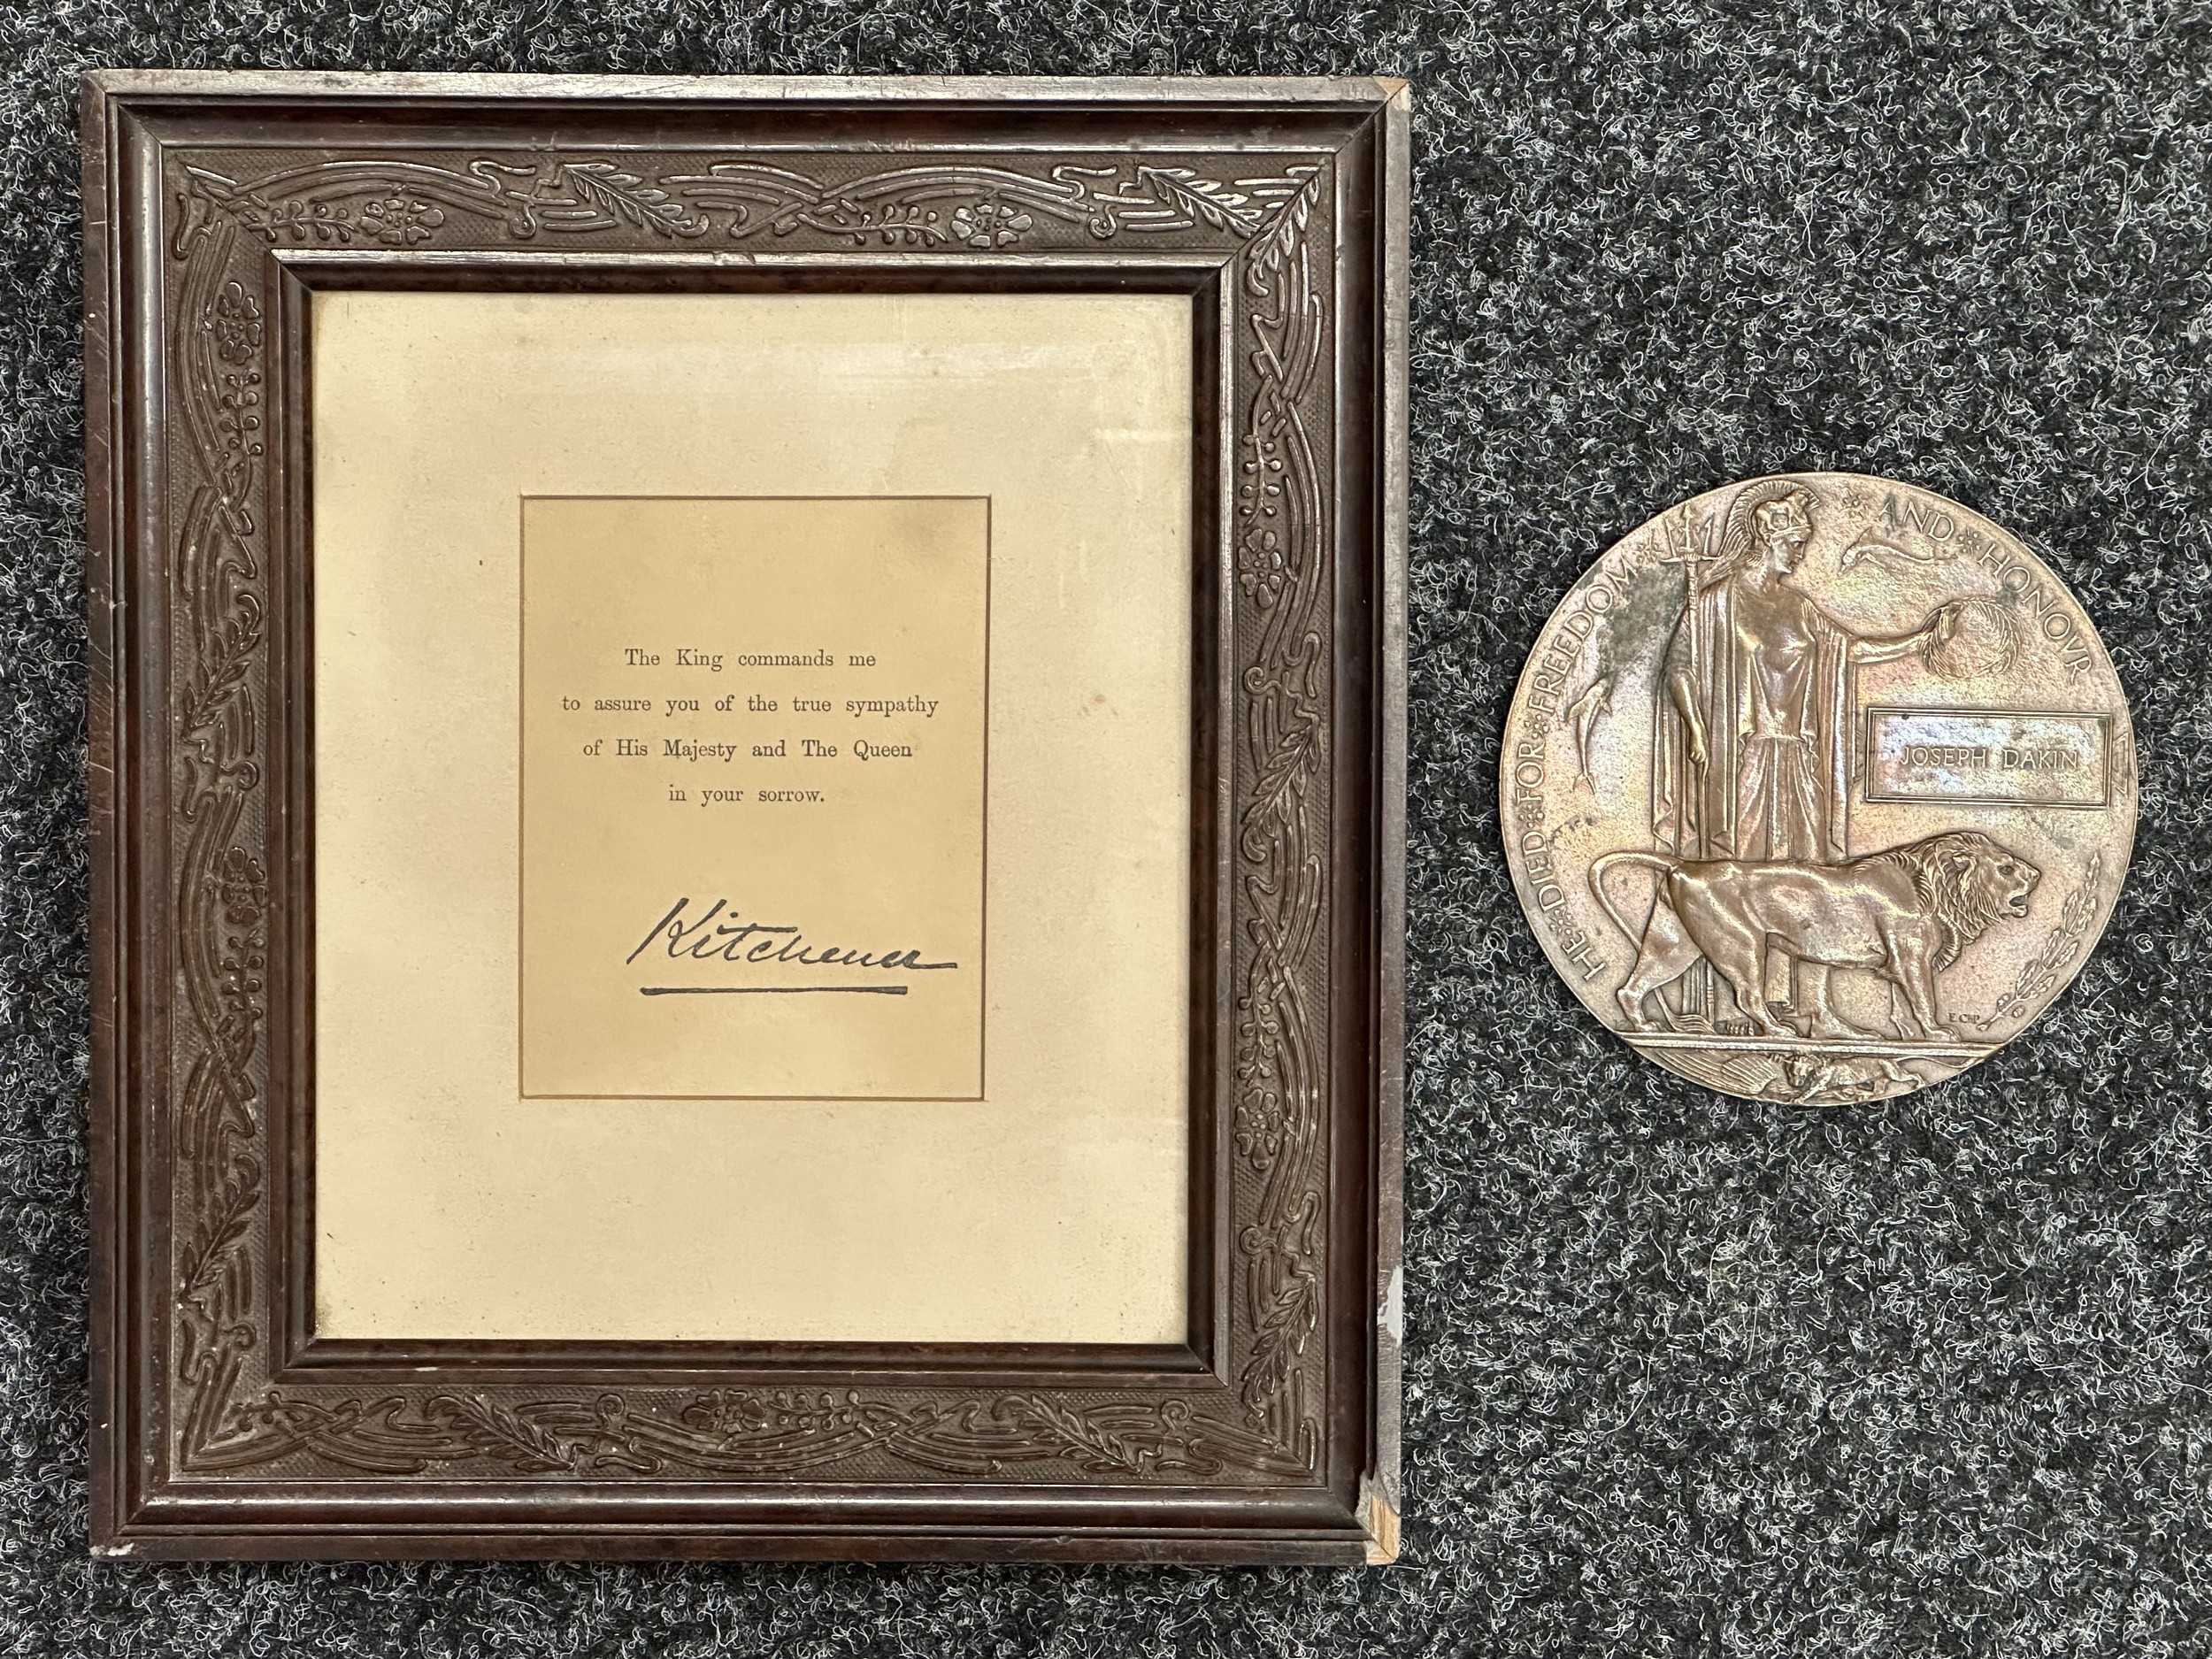 The King commands me
to assure you of the true sympathy
of His Majesty and The Queen
in your sorrow.
Kitchener
HE DIED FOR FREEDOM AND HONOVR
JOSEPH DAKIN